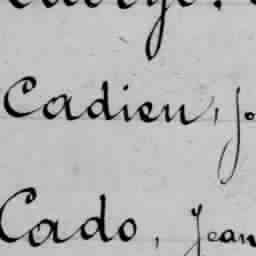 Cadieu, Jo
Cado, Jean